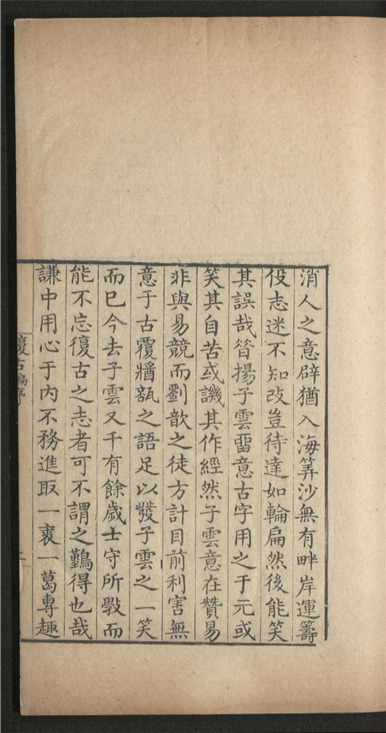 消人之意辟猶入海筭沙無有畔岸運籌
伇志迷不知攺豈待達如輪扁然後能笑
其誤哉昔揚子雲畱意古字用之于元或
笑其自苦或譏其作經然子雲意在贊易
非與易競而劉歆之徒方計目前利害無
意于古覆醬瓿之語足以發子雲之一笑
而已今去子雲又千有餘歲士守所斅而
能不忘復古之志者可不謂之鸛得也哉
謙中用心于内不務進取一裘一葛專趣
復古編序